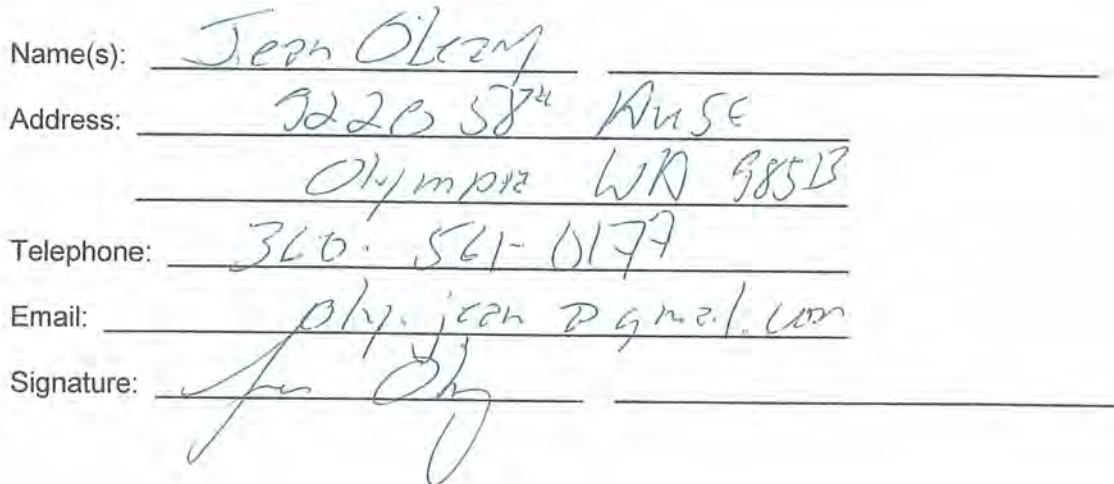 Name(s): Jean O'Leary
Address: 9220 58th Av SE
Olympia WA 98513
Telephone: 360. 561-0177
Email: oly.jean@gmail.com
Signature: